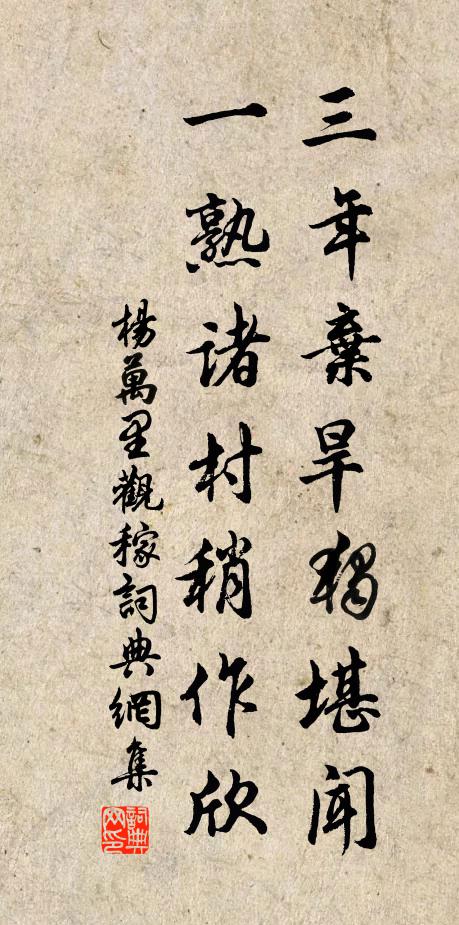 三年棄旱獨堪聞
一熟诸村稍作欣
楊萬里觀稼詞典網集
詞典網印